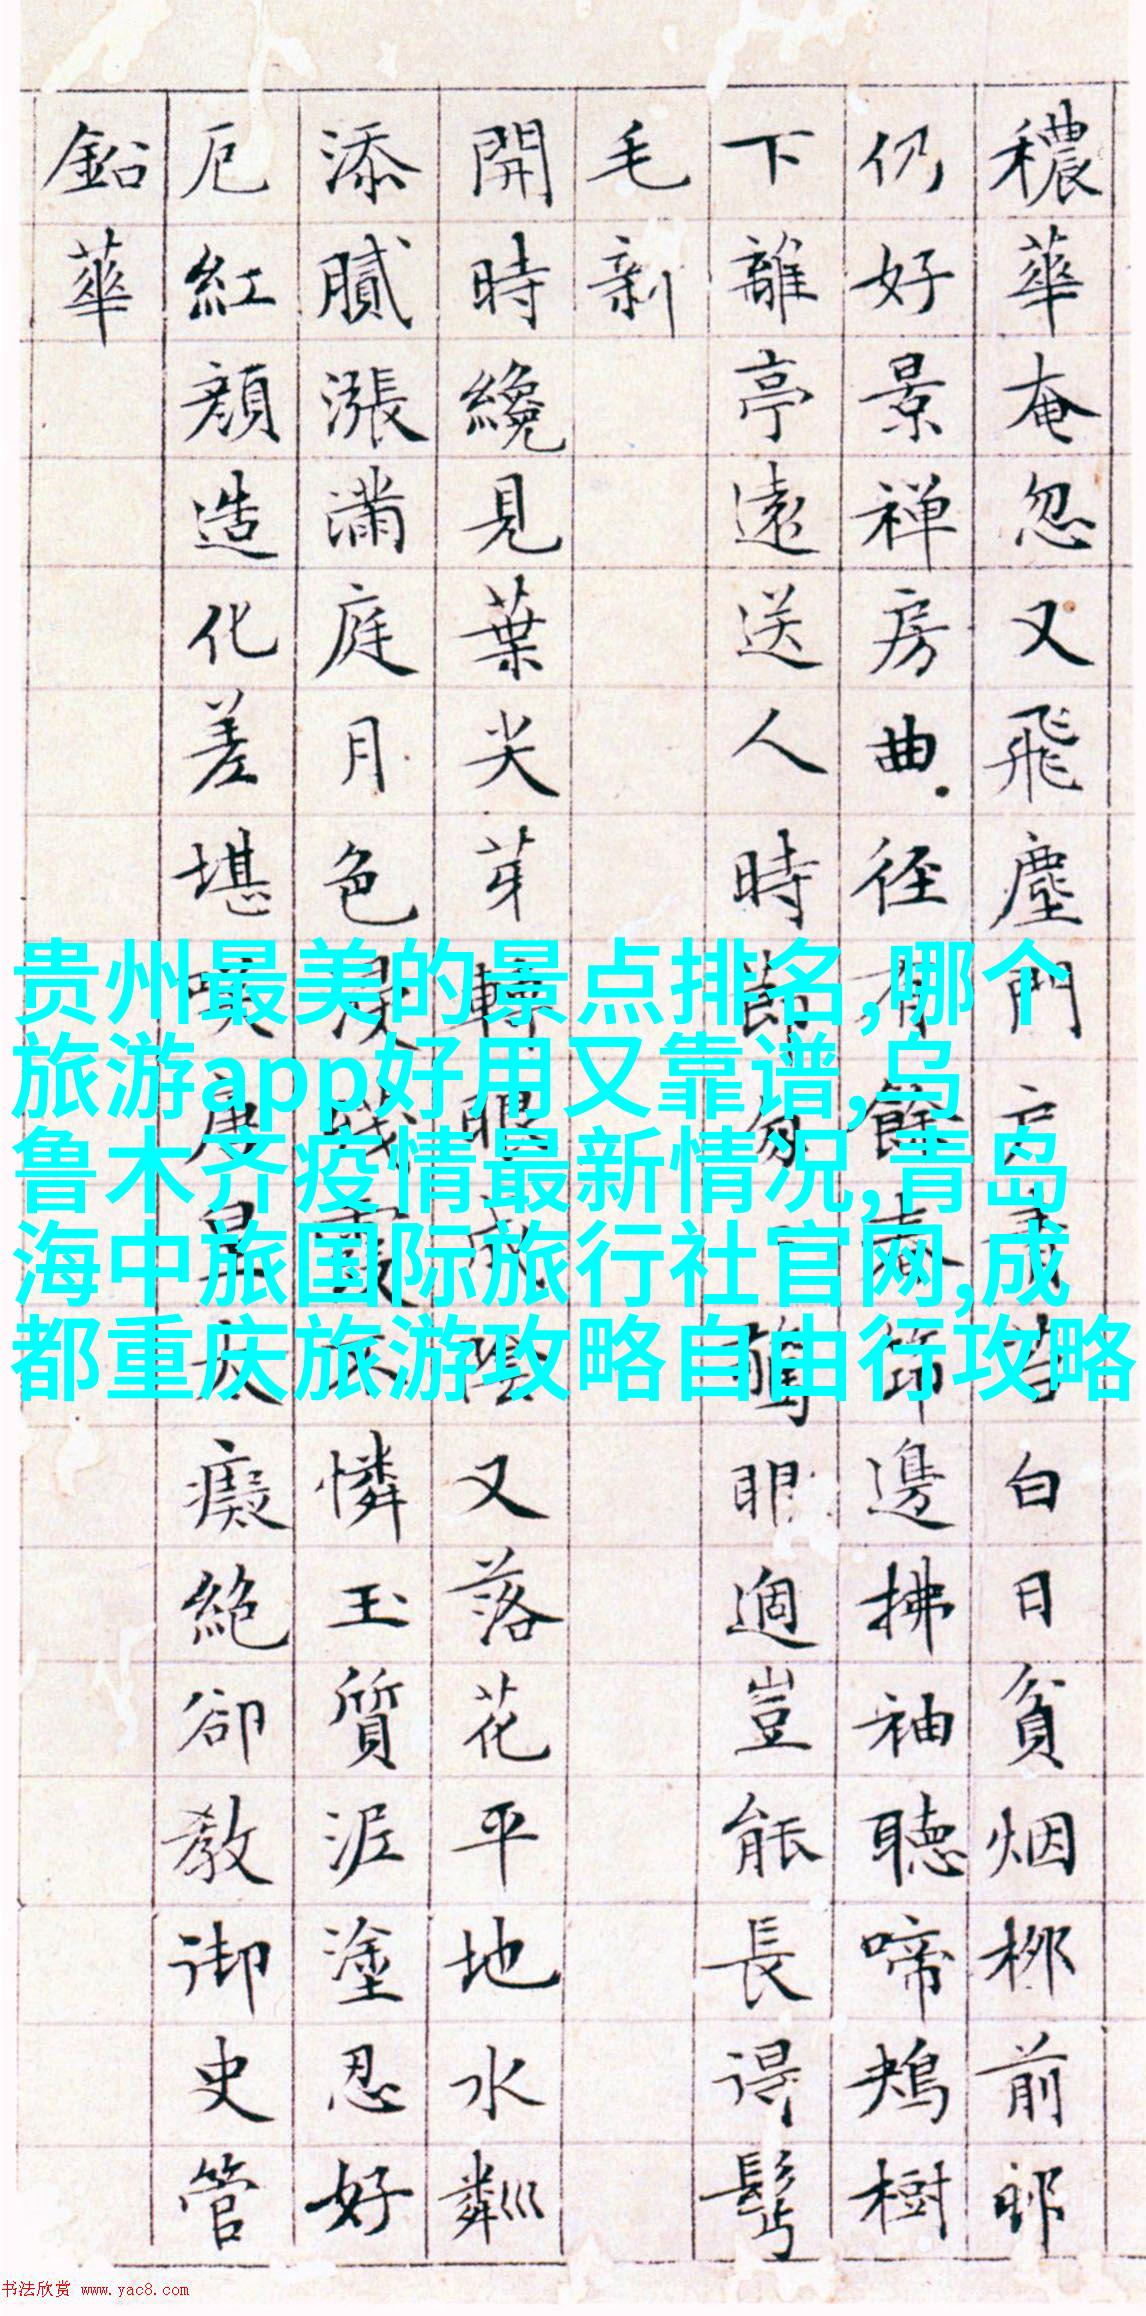 穠華奄忽又飛塵門戶青苔白日貧烟柳前邨
仍好景禅房曲.径有餘春邊拂袖聽啼鳺樹
下離亭遠送人時節匆眼適豈能長得髩
毛新
開時纔見葉尖芽轉眼成陰又落花平地水粼
添膩漲滿庭月色浸殘霞不憐玉質泥塗忍好
厄紅顏造化差堪嘆唐皇太癡絕卻教御史管
鉛華
贵州最美的景点排名,哪个
旅游app好用又靠谱,乌
鲁木齐疫情最新情况,青岛
海中旅国际旅行社官网,成
都重庆旅游攻略自由行攻略
书法欣赏 www.yac8.com